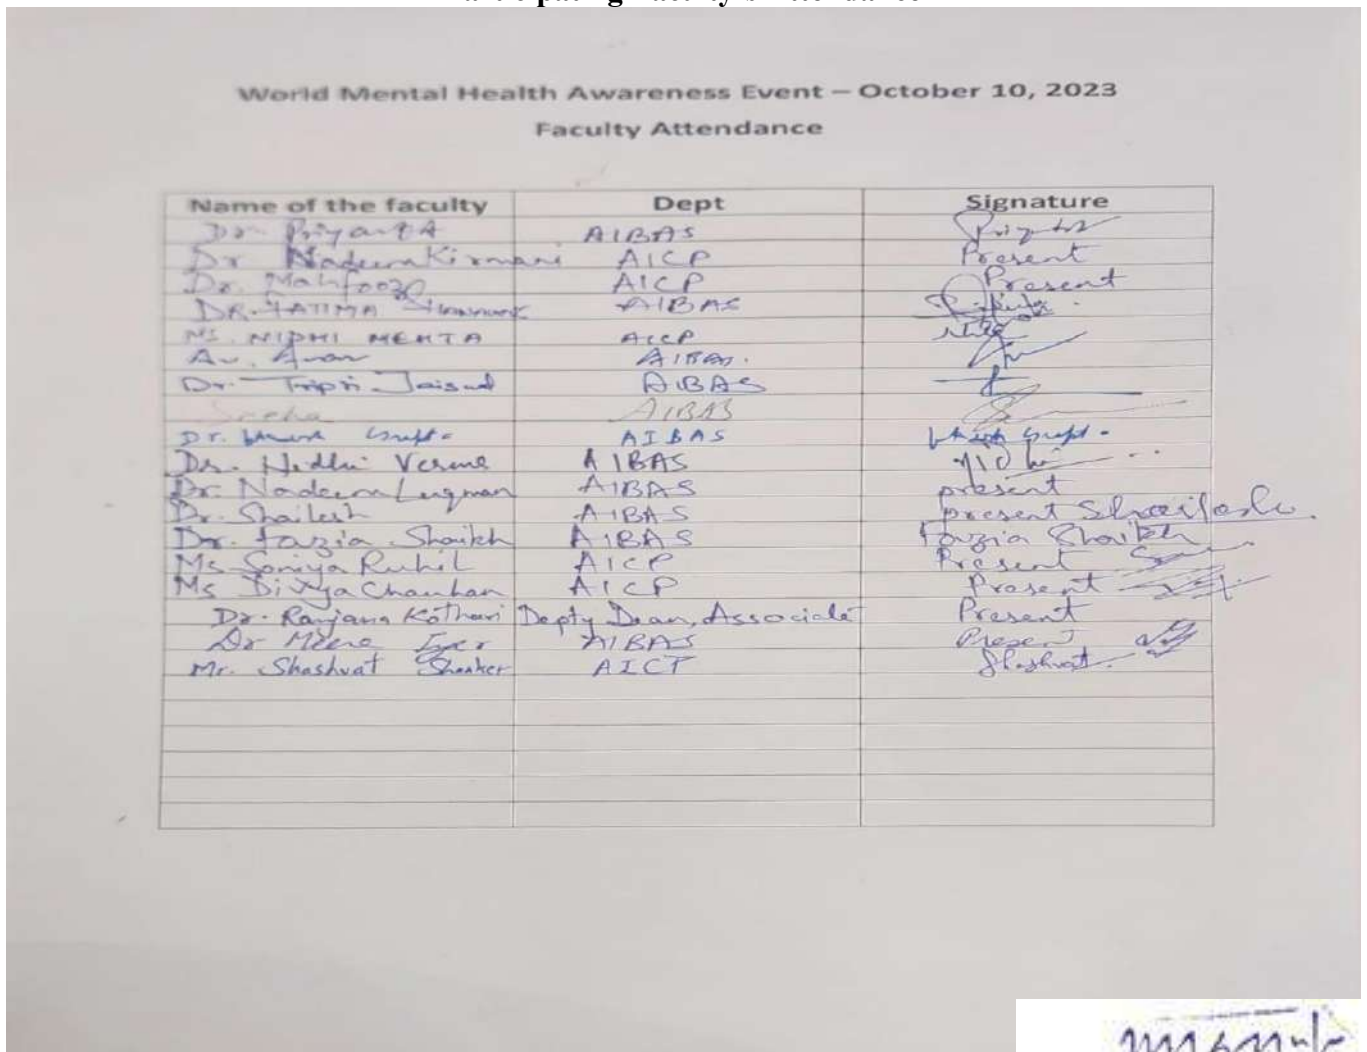 World Mental Health Awareness Event – October 10, 2023
Faculty Attendance
Name of the faculty Dept Signature
Dr. Priyanka AIBAS
Dr Nadeem Kirmani AICP Present
Dr. Mahfooz AICP Present
DR. FATIMA AIBAS
MS. NIDHI MEHTA AICP
AIBAS.
Dr. Tripti Jaiswal AIBAS
Sneha AIBAS
Dr. Gupta AIBAS
Dr. Nidhi Verma AIBAS Nidhi
Dr. Nadeem Luqman AIBAS present
Dr. Shailesh AIBAS present Shailesh
Dr. Fazia Shaikh AIBAS Fazia Shaikh
Ms Soniya Ruhil AICP Present
Ms Divya Chauhan AICP Present
Dr. Ranjana Kothari Depty Dean, Associate Present
Dr Meena Iyer AIBAS Present
Mr. Shashvat Shanker AICT Shashvat.